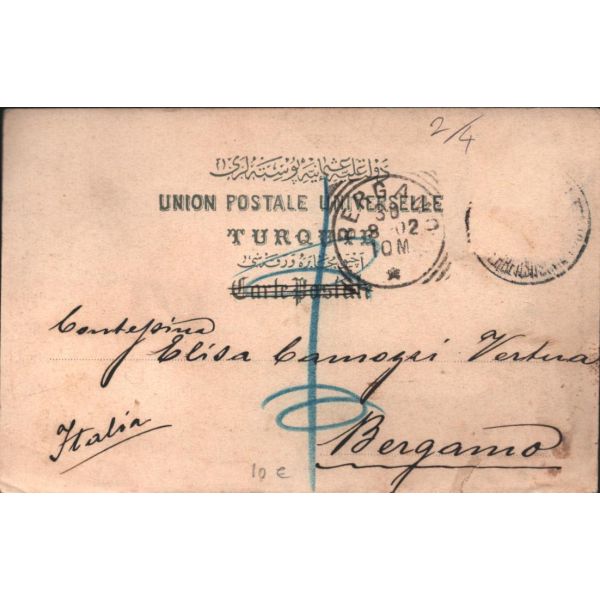 2/4
دولت علیه عثمانیه پوسته لری
UNION POSTALE UNIVERSELLE
TURQUIE
Carte Postale
BERGAMO
30
8 02
10 M
Contessina
Elisa Camozzi Vertova
Italia
Bergamo
10 €